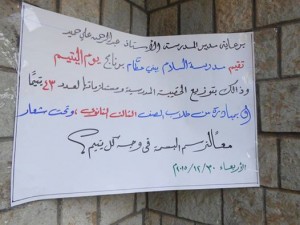 برعاية مدير المدرسة الأستاذ عبدالرحمن علي حمير
تقيم مدرسة السلام ببني حكام برنامج يوم اليتيم
وذالك بتوزيع الحقيبة المدرسية ومستلزماتها لعدد ٤٣ يتيماً
بمبادرة من طلاب الصف الثالث الثانوي وتحت شعار
معاً لنرسم البسمة في وجه كل يتيم؟
الأربعاء ٣٠/١٢/٢٠١٥